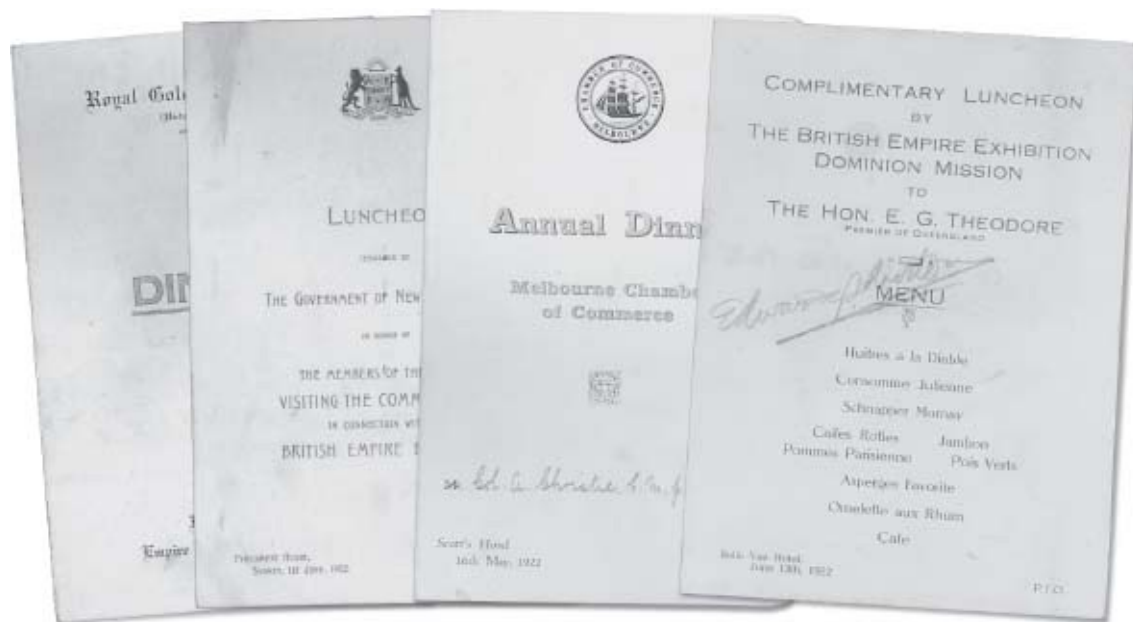 Royal Gol
DIN
Empire
LUNCHEO
TENDERED BY
THE GOVERNMENT OF NEW
IN HONOR OF
THE MEMBERS OF TH
VISITING THE COMM
IN CONNECTION WIT
BRITISH EMPIRE E
Parliament House,
Sydney, 1st June, 1922
CHAMBER OF COMMERCE
MELBOURNE
Annual Dinn
Melbourne Chambe
of Commerce
Col. A. Christie C.M.G
Scott's Hotel
16th May, 1922
COMPLIMENTARY LUNCHEON
BY
THE BRITISH EMPIRE EXHIBITION
DOMINION MISSION
TO
THE HON. E. G. THEODORE
PREMIER OF QUEENSLAND
MENU
Huitres a la Diable
Consomme Julienne
Schnapper Mornay
Cailes Roties Jambon
Pommes Parisienne Pois Verts
Asperges Favorite
Omelette aux Rhum
Cafe
Belle Vue Hotel,
June 13th, 1922
P.T.O.